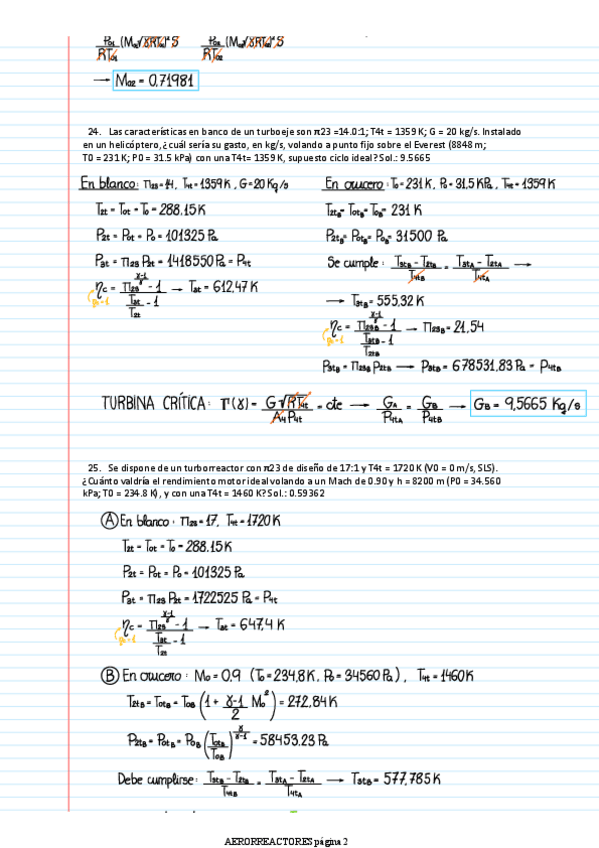 P01 (M01√γRT01)² S P02 (M02√γRT02)² S
RT01 RT02
→ M02 = 0,71981
24. Las características en banco de un turboeje son π23 =14.0:1; T4t = 1359 K; G = 20 kg/s. Instalado
en un helicóptero, ¿cuál sería su gasto, en kg/s, volando a punto fijo sobre el Everest (8848 m;
T0 = 231 K; P0 = 31.5 kPa) con una T4t= 1359 K, supuesto ciclo ideal? Sol.: 9.5665
En blanco: Π23=14, T4t = 1359K, G=20 Kg/s En crucero: T0=231K, P0=31,5 KPa, T4t=1359K
T2t = T0t = T0 = 288.15K T2tB = T0tB = T0B = 231 K
P2t = P0t = P0 = 101325 Pa P2tB = P0tB = P0B = 31500 Pa
P3t = Π23 P2t = 1418550 Pa = P4t Se cumple: T3tB - T2tB / T4tB = T3tA - T2tA / T4tA →
ηc = Π23^(γ-1/γ) - 1 / T3t/T2t - 1 → T3t = 612,47 K → T3tB = 555,32 K
ηc=1
ηc = Π23B^(γ-1/γ) - 1 / T3tB/T2tB - 1 → Π23B = 21,54
ηc=1
P3tB = Π23B P2tB → P3tB = 678531,83 Pa = P4tB
TURBINA CRÍTICA: Γ(γ) = G√RT4t / A4 P4t = cte → GA / P4tA = GB / P4tB → GB = 9,5665 Kg/s
25. Se dispone de un turborreactor con π23 de diseño de 17:1 y T4t = 1720 K (V0 = 0 m/s, SLS).
¿Cuánto valdría el rendimiento motor ideal volando a un Mach de 0.90 y h = 8200 m (P0 = 34.560
kPa; T0 = 234.8 K), y con una T4t = 1460 K? Sol.: 0.59362
A En blanco: Π23 = 17, T4t = 1720K
T2t = T0t = T0 = 288.15K
P2t = P0t = P0 = 101325 Pa
P3t = Π23 P2t = 1722525 Pa = P4t
ηc = Π23^(γ-1/γ) - 1 / T3t/T2t - 1 → T3t = 647,4 K
ηc=1
B En crucero: M0 = 0,9 (T0 = 234,8K, P0 = 34560 Pa), T4t = 1460K
T2tB = T0tB = T0B (1 + γ-1/2 M0²) = 272,84 K
P2tB = P0tB = P0B (T0tB/T0B)^(γ/γ-1) = 58453.23 Pa
Debe cumplirse: T3tB - T2tB / T4tB = T3tA - T2tA / T4tA → T3tB = 577,785 K
AERORREACTORES página 2